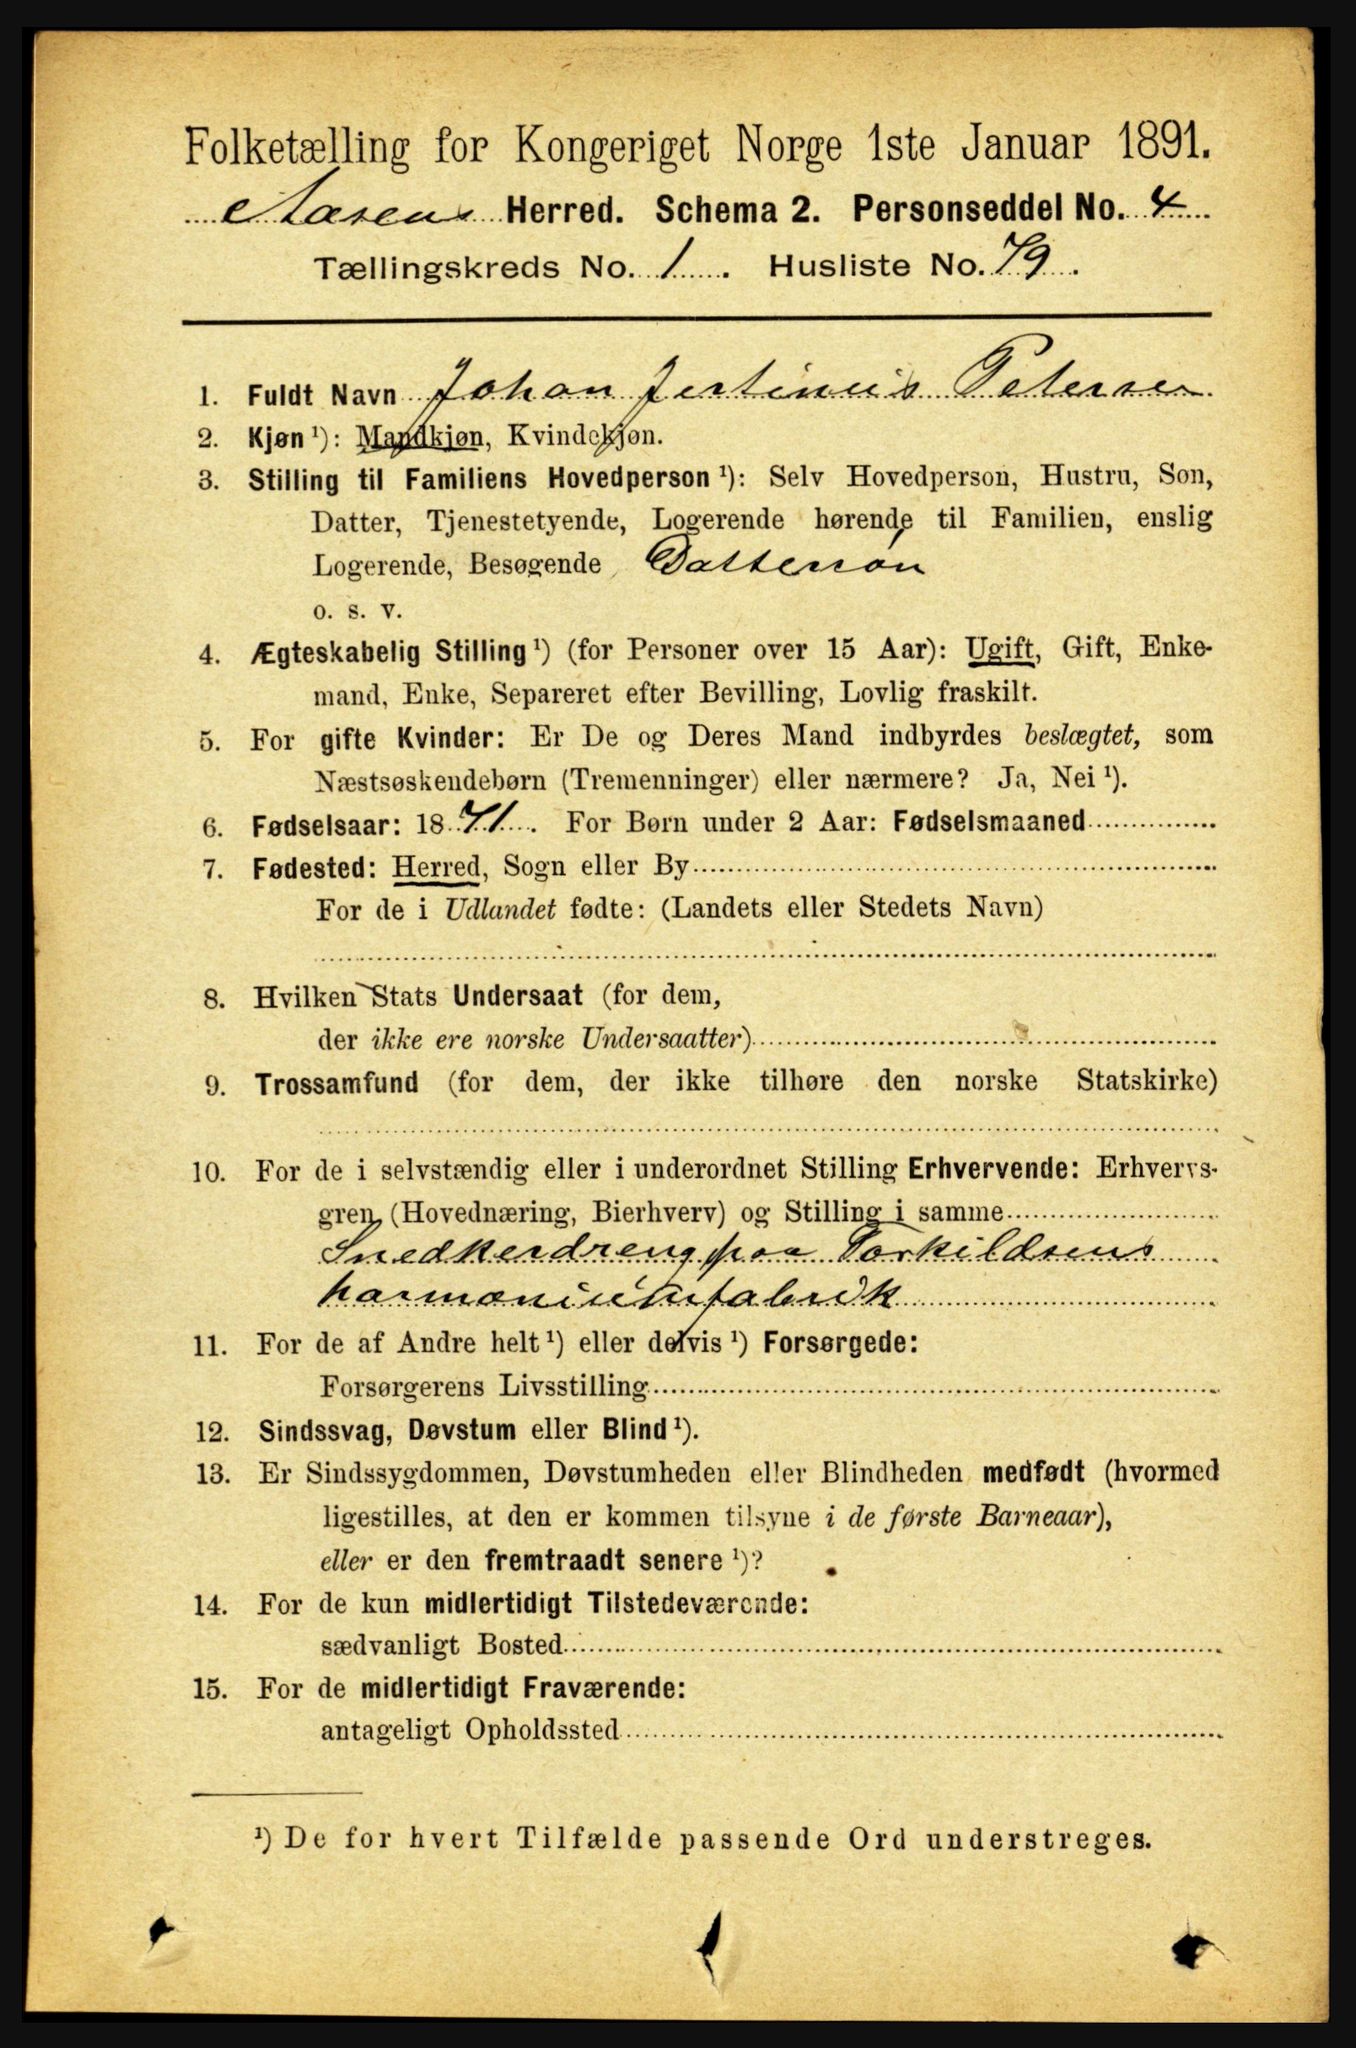 Folketælling for Kongeriget Norge 1ste Januar 1891.
Aasens Herred. Schema 2. Personseddel No. 4
Tællingskreds No. 1. Husliste No. 79.
1. Fuldt Navn Johan Jertinius Petersen
2. Kjøn ¹): Mandkjøn, Kvindekjøn.
3. Stilling til Familiens Hovedperson ¹): Selv Hovedperson, Hustru, Søn,
Datter, Tjenestetyende, Logerende hørende til Familien, enslig
Logerende, Besøgende Dattersøn
o. s. v.
4. Ægteskabelig Stilling ¹) (for Personer over 15 Aar): Ugift, Gift, Enke-
mand, Enke, Separeret efter Bevilling, Lovlig fraskilt.
5. For gifte Kvinder: Er De og Deres Mand indbyrdes beslægtet, som
Næstsøskendebørn (Tremenninger) eller nærmere? Ja, Nei ¹).
6. Fødselsaar: 1871. For Børn under 2 Aar: Fødselsmaaned
7. Fødested: Herred, Sogn eller By
For de i Udlandet fødte: (Landets eller Stedets Navn)
8. Hvilken Stats Undersaat (for dem,
der ikke ere norske Undersaatter)
9. Trossamfund (for dem, der ikke tilhøre den norske Statskirke)
10. For de i selvstændig eller i underordnet Stilling Erhvervende: Erhvervs-
gren (Hovednæring, Bierhverv) og Stilling i samme
Snedkerdreng paa Torkildsens
harmoniumfabrik
11. For de af Andre helt ¹) eller delvis ¹) Forsørgede:
Forsørgerens Livsstilling
12. Sindssvag, Døvstum eller Blind ¹).
13. Er Sindssygdommen, Døvstumheden eller Blindheden medfødt (hvormed
ligestilles, at den er kommen tilsyne i de første Barneaar),
eller er den fremtraadt senere ¹)?
14. For de kun midlertidigt Tilstedeværende:
sædvanligt Bosted
15. For de midlertidigt Fraværende:
antageligt Opholdssted
¹) De for hvert Tilfælde passende Ord understreges.